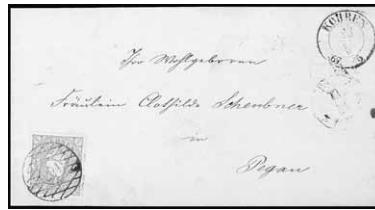 KOHREN
Ihr Wohlgeboren
Fräulein Clothilde Scheubner
in
Pegau